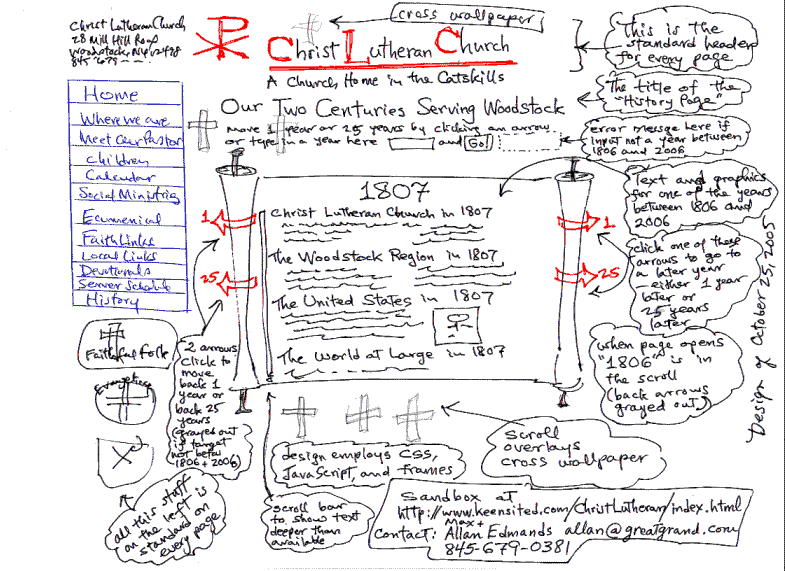 Christ Lutheran Church
28 Mill Hill Road
Woodstock, NY 12498
845 679
cross wallpaper
Christ Lutheran Church
A Church Home in the Catskills
This is the
standard header
for every page
The title of the
"History Page"
Our Two Centuries Serving Woodstock
move 1 year or 25 years by clicking an arrow
or type in a year here and Go!
error message here if
input not a year between
1806 and 2006
Home
Where we are
Meet Our Pastor
Children
Calendar
Social Ministries
Ecumenical
Faith Links
Local Links
Devotionals
Server Schedule
History
1807
Christ Lutheran Church in 1807
The Woodstock Region in 1807
The United States in 1807
The World at Large in 1807
1
25
1
25
Text and graphics
for one of the years
between 1806 and
2006
click one of these
arrows to go to
a later year
either 1 year
later or
25 years
later
when page opens
"1806" is in
the scroll
(back arrows
grayed out)
Design of October 25, 2005
Faithful folk
2 arrows
click to
move
back 1
year or
back 25
years
(grayed out
if target
not betw
1806 + 2006)
all this stuff
on the left is
standard on
every page
design employs CSS,
JavaScript, and frames
scroll
overlays
cross wallpaper
scroll bar
to show text
deeper than
available
Sandbox at
http://www.keensited.com/ChristLutheran/index.html
Max +
Contact: Allan Edmands allan@greatgrand.com
845-679-0381